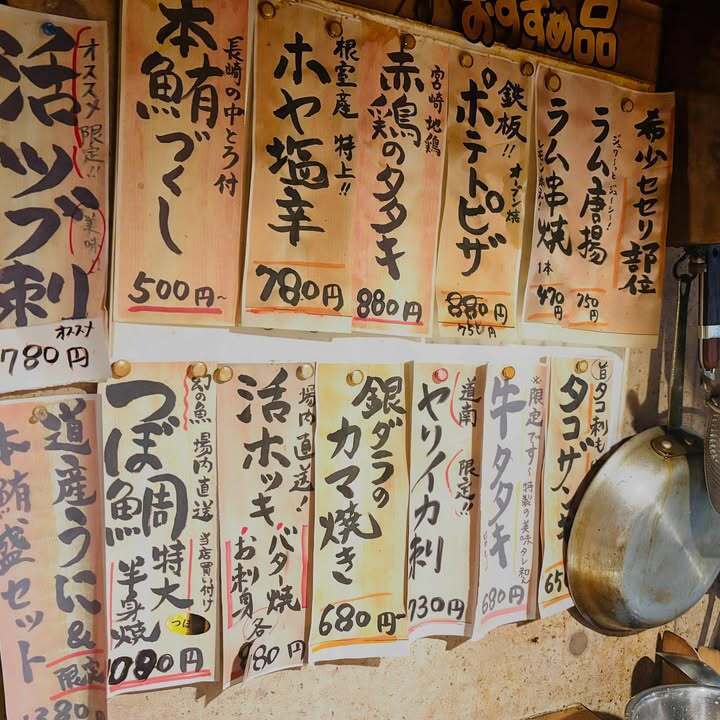 おすすめ品
希少セセリ部位
ジュワーとジューシー!
ラム唐揚
750円
レモン添え!
ラム串焼
1本
470円
鉄板!! オーブン焼
ポテトピザ
880円
750円
宮崎地鶏
赤鶏のタタキ
880円
根室産 特上!!
ホヤ塩辛
780円
長崎の中とろ付
本鮪づくし
500円~
オススメ 限定!!
活ツブ刺
美味
オススメ
780円
旨タコ刺も
タコザンギ
650
※限定です~特製の美味タレ和え
牛タタキ
680円
道南 限定!!
ヤリイカ刺
730円
銀ダラの
カマ焼き
680円~
場内直送!
活ホッキ
バタ焼
お刺身
各
980円
幻の魚 場内直送 当店買い付け
つぼ鯛
特大
半身焼
1080円
道産うに&
本鮪、盛セット
限定
1380